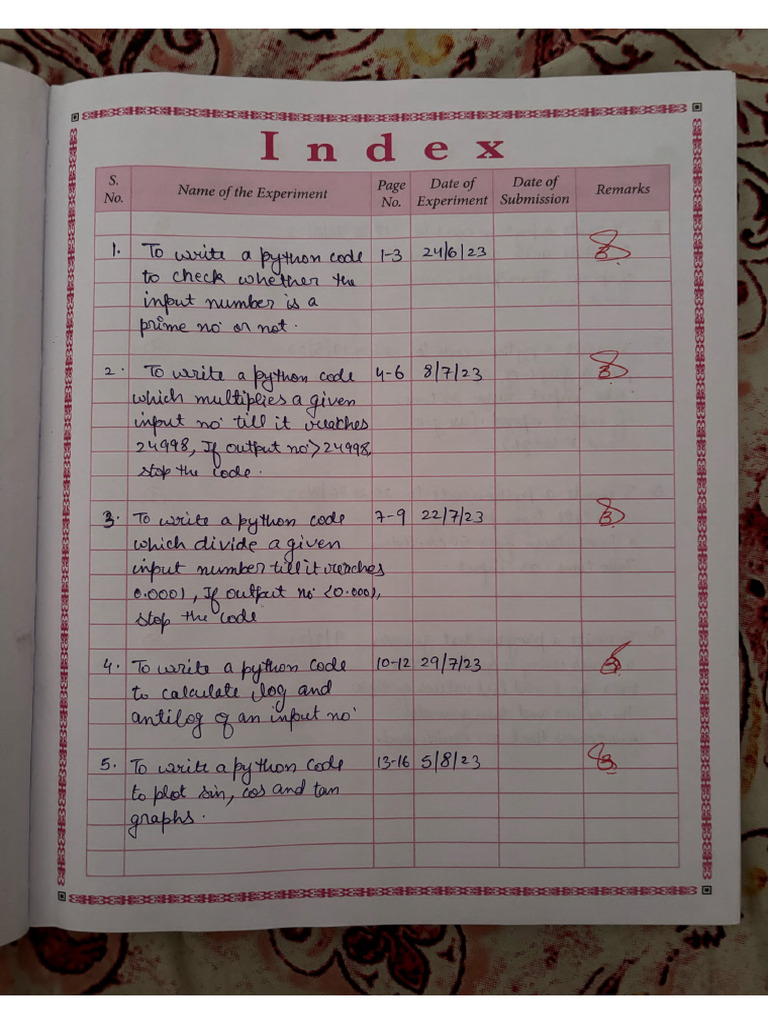 Index
S. No. Name of the Experiment Page No. Date of Experiment Date of Submission Remarks
1. To write a python code 1-3 24/6/23
to check whether the
input number is a
prime no. or not.
2. To write a python code 4-6 8/7/23
which multiplies a given
input no. till it reaches
24998, If output no > 24998,
stop the code.
3. To write a python code 7-9 22/7/23
which divide a given
input number till it reaches
0.0001, If output no. <0.0001,
stop the code
4. To write a python code 10-12 29/7/23
to calculate log and
antilog of an input no.
5. To write a python code 13-16 5/8/23
to plot sin, cos and tan
graphs.